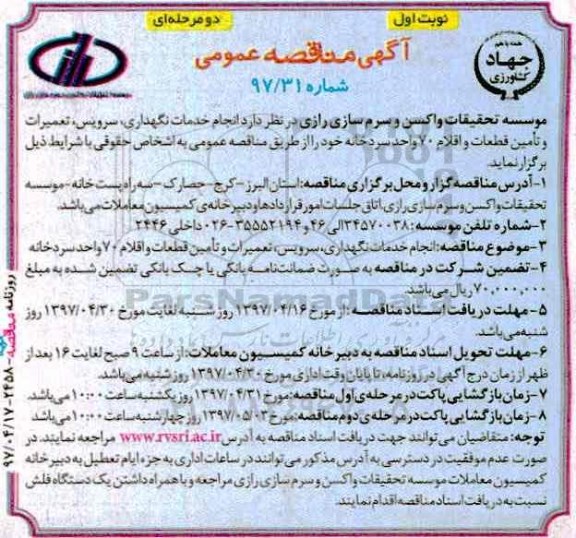 نوبت اول
دو مرحله‌ای
همه با هم
جهاد
کشاورزی
آگهی مناقصه عمومی
شماره ۹۷/۳۱
موسسه تحقیقات واکسن و سرم سازی رازی در نظر دارد انجام خدمات نگهداری، سرویس، تعمیرات
و تأمین قطعات و اقلام ۷۰ واحد سردخانه خود را از طریق مناقصه عمومی به اشخاص حقوقی با شرایط ذیل
برگزار نماید.
۱- آدرس مناقصه گزار و محل برگزاری مناقصه: استان البرز - کرج - حصارک - سه راه پست خانه - موسسه
تحقیقات واکسن و سرم سازی رازی، اتاق جلسات امور قراردادها و دبیرخانه‌ی کمیسیون معاملات می‌باشد.
۲- شماره تلفن موسسه: ۳۴۵۷۰۰۳۸ الی ۴۶ و ۳۵۵۵۲۱۹۴-۰۲۶ داخلی ۲۴۴۶
۳- موضوع مناقصه: انجام خدمات نگهداری، سرویس، تعمیرات و تأمین قطعات و اقلام ۷۰ واحد سردخانه
۴- تضمین شرکت در مناقصه به صورت ضمانت‌نامه بانکی یا چک بانکی تضمین شده به مبلغ
۷۰,۰۰۰,۰۰۰ ریال می‌باشد.
۵- مهلت دریافت اسناد مناقصه: از مورخ ۱۳۹۷/۰۴/۱۶ روز شنبه لغایت مورخ ۱۳۹۷/۰۴/۳۰ روز
شنبه می‌باشد.
۶- مهلت تحویل اسناد مناقصه به دبیرخانه کمیسیون معاملات: از ساعت ۹ صبح لغایت ۱۶ بعد از
ظهر از زمان درج آگهی در روزنامه، تا پایان وقت اداری مورخ ۱۳۹۷/۰۴/۳۰ روز شنبه می‌باشد.
۷- زمان بازگشایی پاکت در مرحله‌ی اول مناقصه: مورخ ۱۳۹۷/۰۴/۳۱ روز یکشنبه ساعت ۱۰:۰۰ می‌باشد.
۸- زمان بازگشایی پاکت در مرحله‌ی دوم مناقصه: مورخ ۱۳۹۷/۰۵/۰۳ روز چهارشنبه ساعت ۱۰:۰۰ می‌باشد
توجه: متقاضیان می‌توانند جهت دریافت اسناد مناقصه به آدرس www.rvsri.ac.ir مراجعه نمایند. در
صورت عدم موفقیت در دسترسی به آدرس مذکور می‌توانند در ساعات اداری به جزء ایام تعطیل به دبیرخانه
کمیسیون معاملات موسسه تحقیقات واکسن و سرم سازی رازی مراجعه و با همراه داشتن یک دستگاه فلش
نسبت به دریافت اسناد مناقصه اقدام نمایند.
روزنامه مناقصه - ۲۴۵۸ - ۹۷/۰۴/۱۷
ParsNamadData